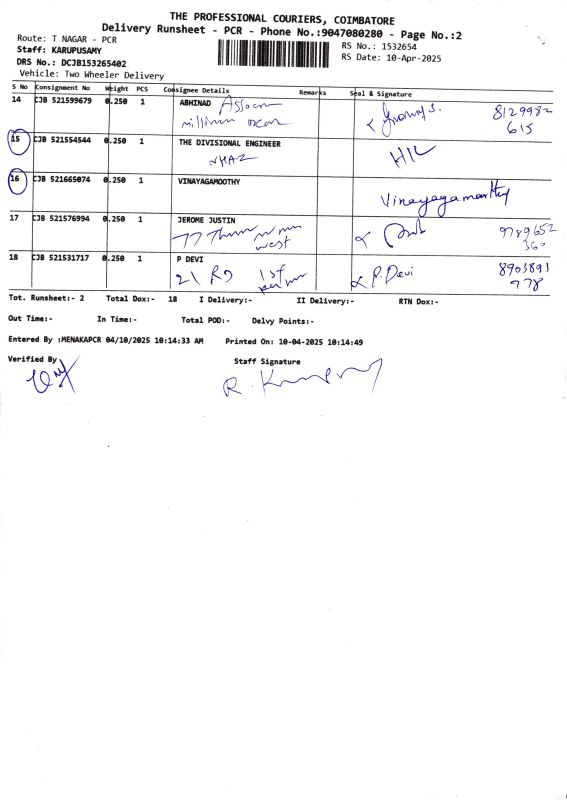 THE PROFESSIONAL COURIERS, COIMBATORE
Delivery Runsheet - PCR - Phone No.:9047080280 - Page No.:2
Route: T NAGAR - PCR
RS No.: 1532654
Staff: KARUPUSAMY
RS Date: 10-Apr-2025
DRS No.: DCJB153265402
Vehicle: Two Wheeler Delivery
S No Consignment No Weight PCS Consignee Details Remarks Seal & Signature
14 CJB 521599679 0.250 1 ABHINAD 8129982
615
15 CJB 521554544 0.250 1 THE DIVISIONAL ENGINEER
16 CJB 521665074 0.250 1 VINAYAGAMOOTHY
Vinayagamoorthy
17 CJB 521576994 0.250 1 JEROME JUSTIN
77 west 9789652
360
18 CJB 521531717 0.250 1 P DEVI
21 RD 1st P. Devi 8903891
978
Tot. Runsheet:- 2 Total Dox:- 18 I Delivery:- II Delivery:- RTN Dox:-
Out Time:- In Time:- Total POD:- Delvy Points:-
Entered By :MENAKAPCR 04/10/2025 10:14:33 AM Printed On: 10-04-2025 10:14:49
Verified By Staff Signature